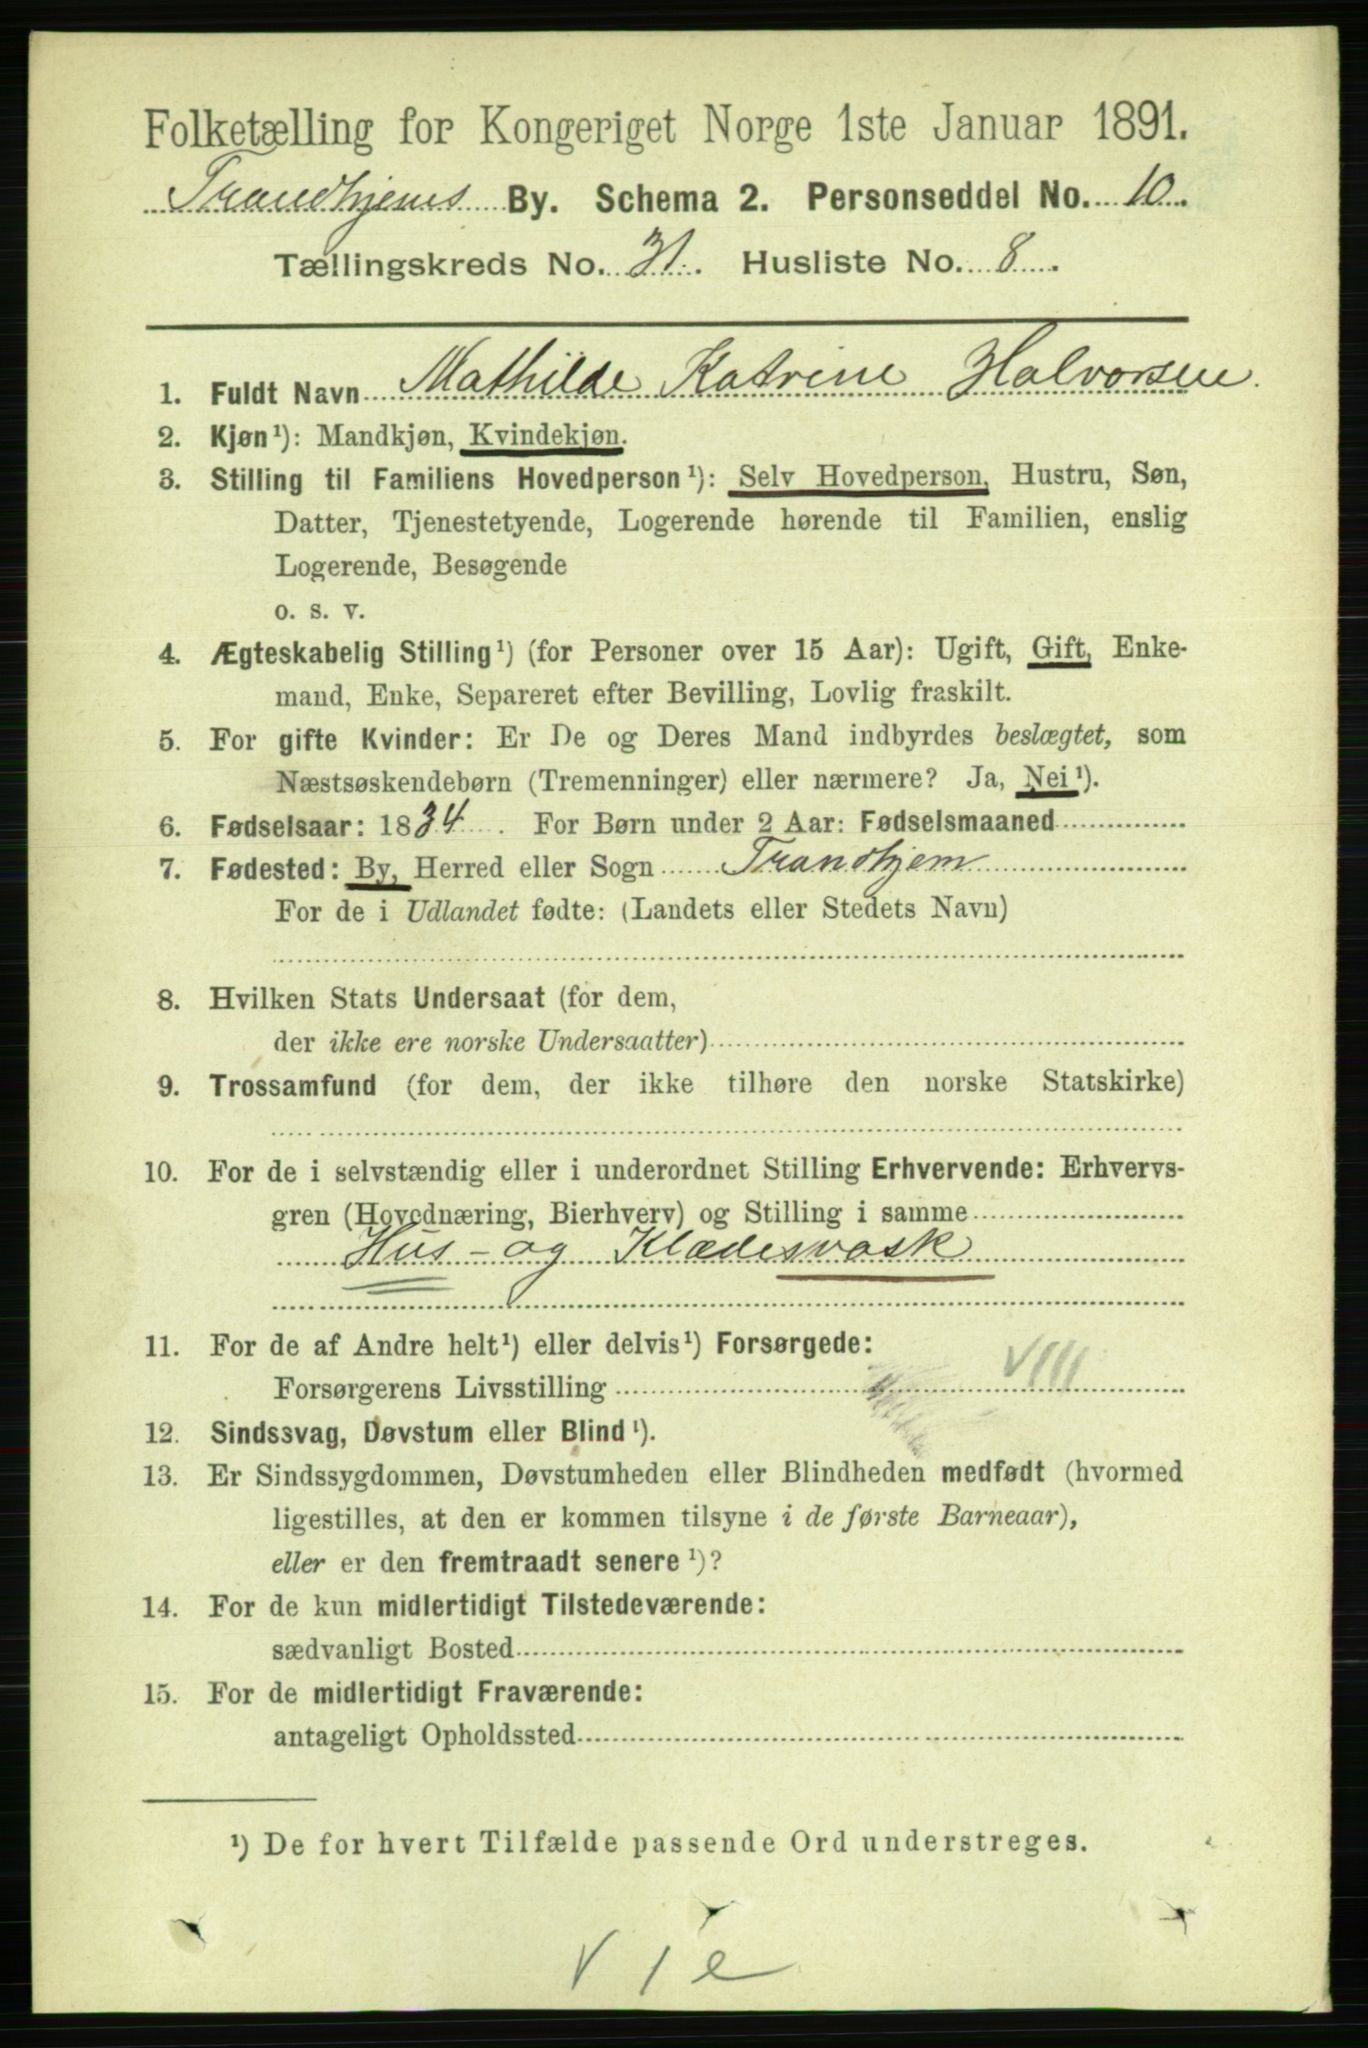 Folketælling for Kongeriget Norge 1ste Januar 1891.
Trondhjems By. Schema 2. Personseddel No. 10.
Tællingskreds No. 31. Husliste No. 8.
1. Fuldt Navn Mathilde Katrine Halvorsen.
2. Kjøn¹): Mandkjøn, Kvindekjøn.
3. Stilling til Familiens Hovedperson¹): Selv Hovedperson, Hustru, Søn,
Datter, Tjenestetyende, Logerende hørende til Familien, enslig
Logerende, Besøgende
o. s. v.
4. Ægteskabelig Stilling¹) (for Personer over 15 Aar): Ugift, Gift, Enke-
mand, Enke, Separeret efter Bevilling, Lovlig fraskilt.
5. For gifte Kvinder: Er De og Deres Mand indbyrdes beslægtet, som
Næstsøskendebørn (Tremenninger) eller nærmere? Ja, Nei¹).
6. Fødselsaar: 1834. For Børn under 2 Aar: Fødselsmaaned
7. Fødested: By, Herred eller Sogn Trondhjem
For de i Udlandet fødte: (Landets eller Stedets Navn)
8. Hvilken Stats Undersaat (for dem,
der ikke ere norske Undersaatter)
9. Trossamfund (for dem, der ikke tilhøre den norske Statskirke)
10. For de i selvstændig eller i underordnet Stilling Erhvervende: Erhvervs-
gren (Hovednæring, Bierhverv) og Stilling i samme
Hus- og Klædesvask
11. For de af Andre helt¹) eller delvis¹) Forsørgede:
VIII
Forsørgerens Livsstilling
12. Sindssvag, Døvstum eller Blind¹).
13. Er Sindssygdommen, Døvstumheden eller Blindheden medfødt (hvormed
ligestilles, at den er kommen tilsyne i de første Barneaar),
eller er den fremtraadt senere¹)?
14. For de kun midlertidigt Tilstedeværende:
sædvanligt Bosted
15. For de midlertidigt Fraværende:
antageligt Opholdssted
¹) De for hvert Tilfælde passende Ord understreges.
V 1 e